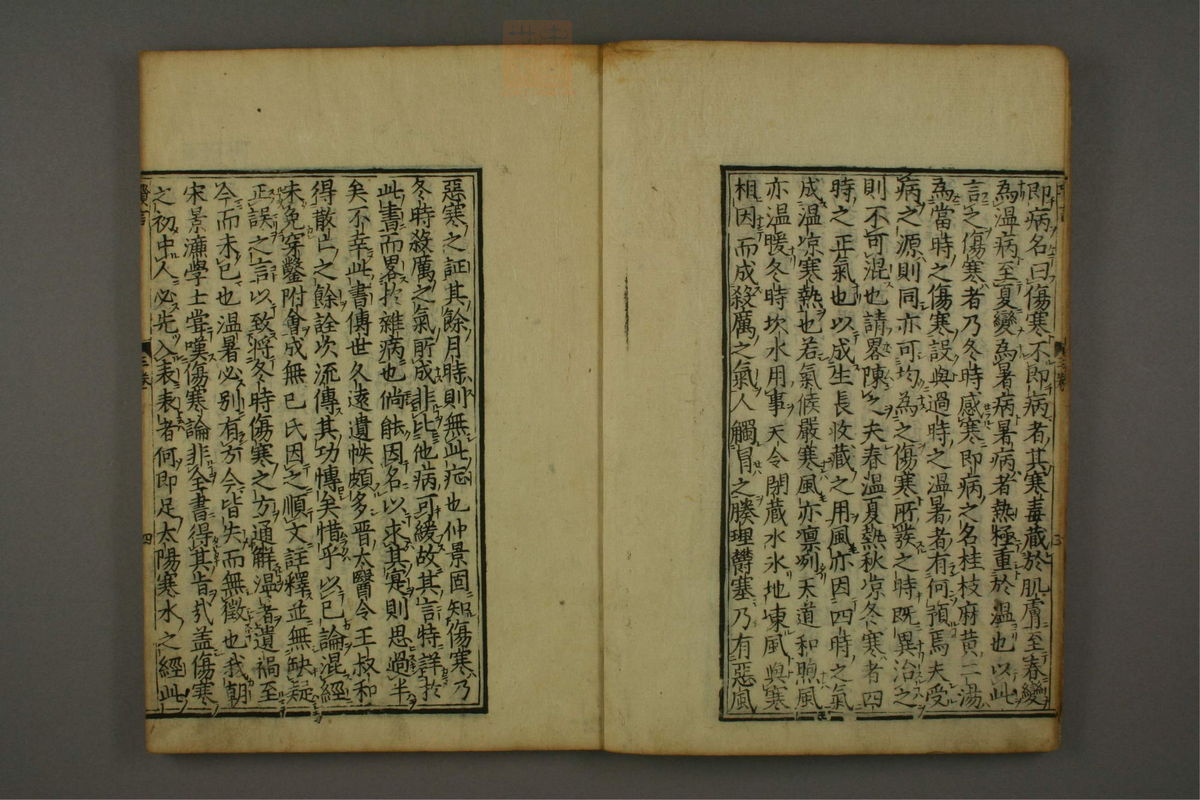 即病名曰傷寒不即病者其寒毒藏於肌膚至春變
為温病至夏變為暑病暑病者熱極重於温也以此
言之傷寒者乃冬時感寒即病之名桂枝麻黄二湯
為當時之傷寒設與過時之温暑者有何預焉夫受
病之源則同亦可均為之傷寒所發之時既異治之
則不可混也請畧陳之夫春温夏熱秋凉冬寒者四
時之正氣也以成生長收藏之用風亦因四時之氣
成温凉寒熱也若氣候嚴寒風亦凛冽天道和煦風
亦温暖冬時坎水用事天令閉藏水氷地凍風與寒
相因而成殺厲之氣人觸冒之腠理鬱塞乃有惡風
惡寒之証其餘月時則無此症也仲景固知傷寒乃
冬時殺厲之氣所成非比他病可緩故其言特詳於
此書而畧於雜病也倘能因名以求其寔則思過半
矣不幸此書傳世久遠遺帙頗多晋太醫令王叔和
得散亡之餘詮次流傳其功博矣惜乎以己論混經
未免穿鑿附會成無已氏因之順文註釋並無缺疑
正誤之言以致將冬時傷寒之方通解温暑遺禍至
今而未已也温暑必别有方今皆失而無徵也我朝
宋景濂學士嘗嘆傷寒論非全書得其旨哉盖傷寒
之初中人必先入表表者何即足太陽寒水之經此